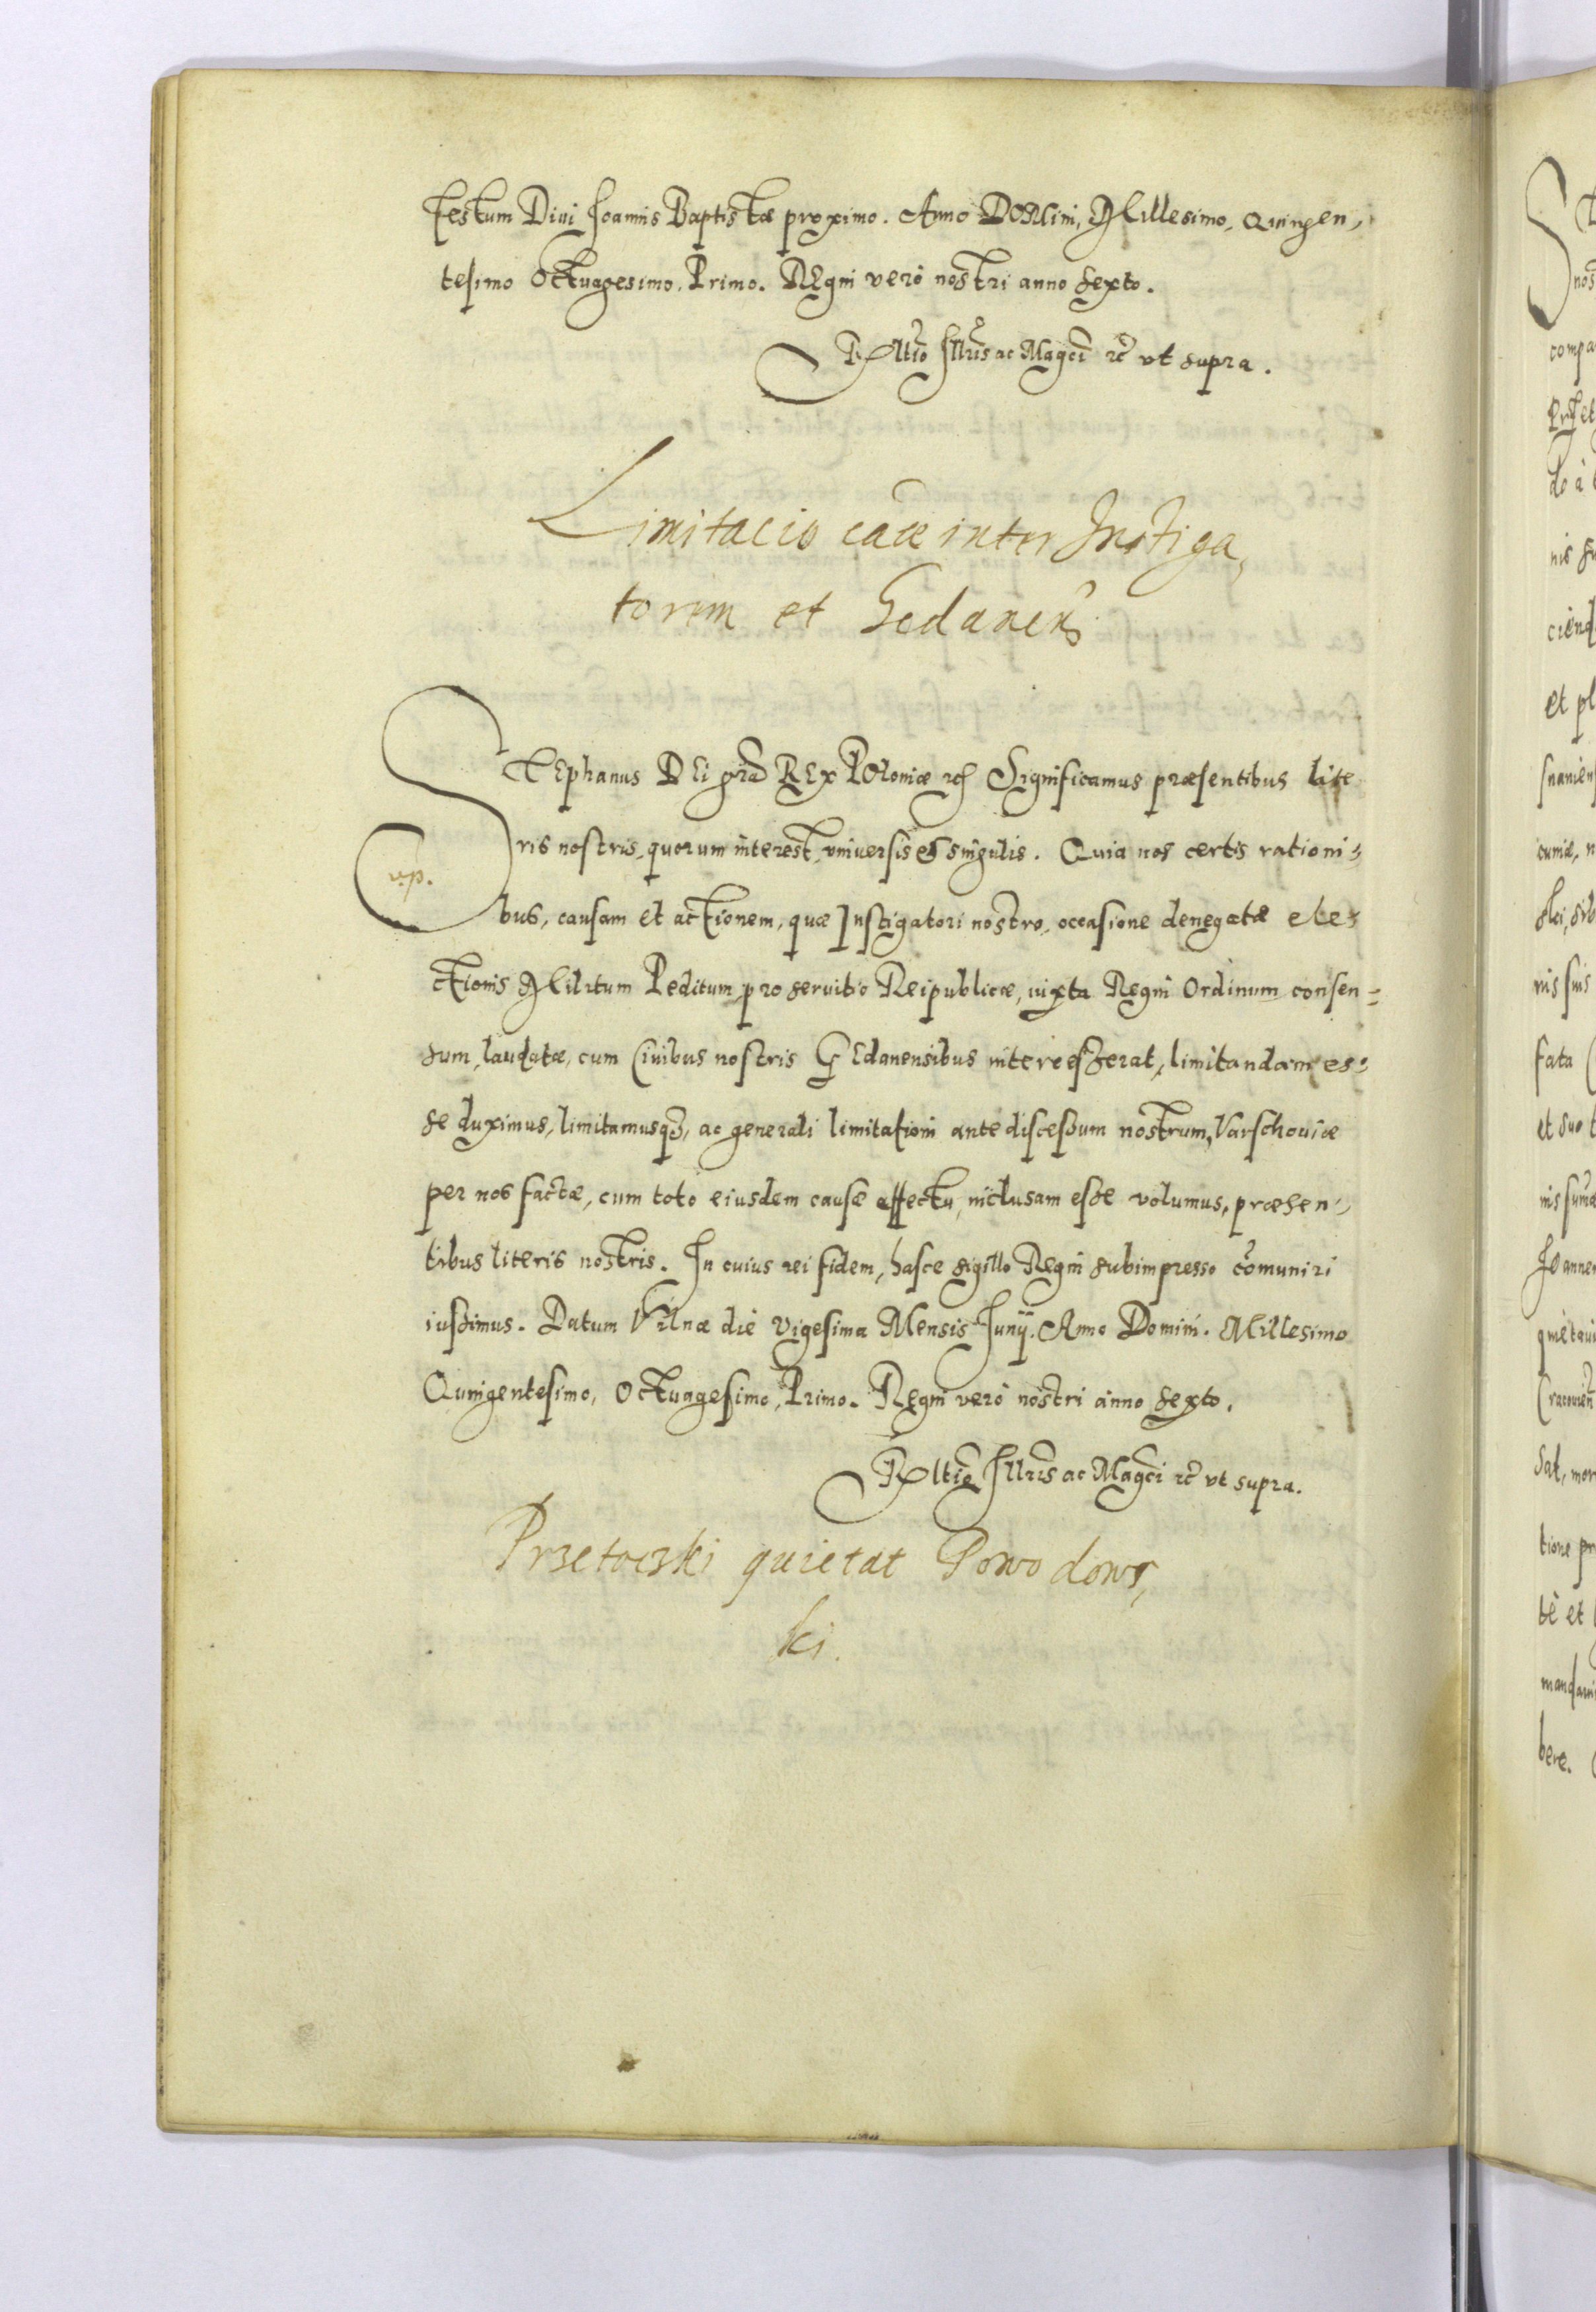 festum Diui Joannis Baptistæ proximo. Anno DOMini, Millesimo, Quingen,
tesimo Octuagesimo, Primo. REgni verò nostri anno sexto.
Rltio Illris ac Magci rc̃ vt supra.
Limitacio caæ inter Instiga,
torem et Gedanen̄
STEphanus DEi gr̃a REx POloniæ rc̃ Significamus præsentibus lite
ris nostris, quorum interest, vniuersis et singulis. Quia nos certis rationi=
vip.
bus, causam et actionem, quæ Instigatori nostro, occasione denegatæ ele=
ctionis Militum Peditum pro seruitio Reipublicæ, iuxta Regni Ordinum consen=
sum, laudatæ, cum Ciuibus nostris GEdanensibus intercesserat, limitandam es=
se duximus, limitamusq3, ac generali limitationi ante discessum nostrum, Varschouiæ
per nos factæ, cum toto eiusdem causæ effectu, inclusam esse volumus, præsen=
tibus literis nostris. In cuius rei fidem, hasce sigillo Regni subimpresso cõmuniri
iussimus. Datum Vilnæ die Vigesima Mensis Junij. Anno Domini. Millesimo
Quingentesimo, Octuagesimo, Primo. Regni verò nostri anno sexto.
Rltio Illris ac Magci rc̃ vt supra.
Przetoczki quietat Powodows,
ki.